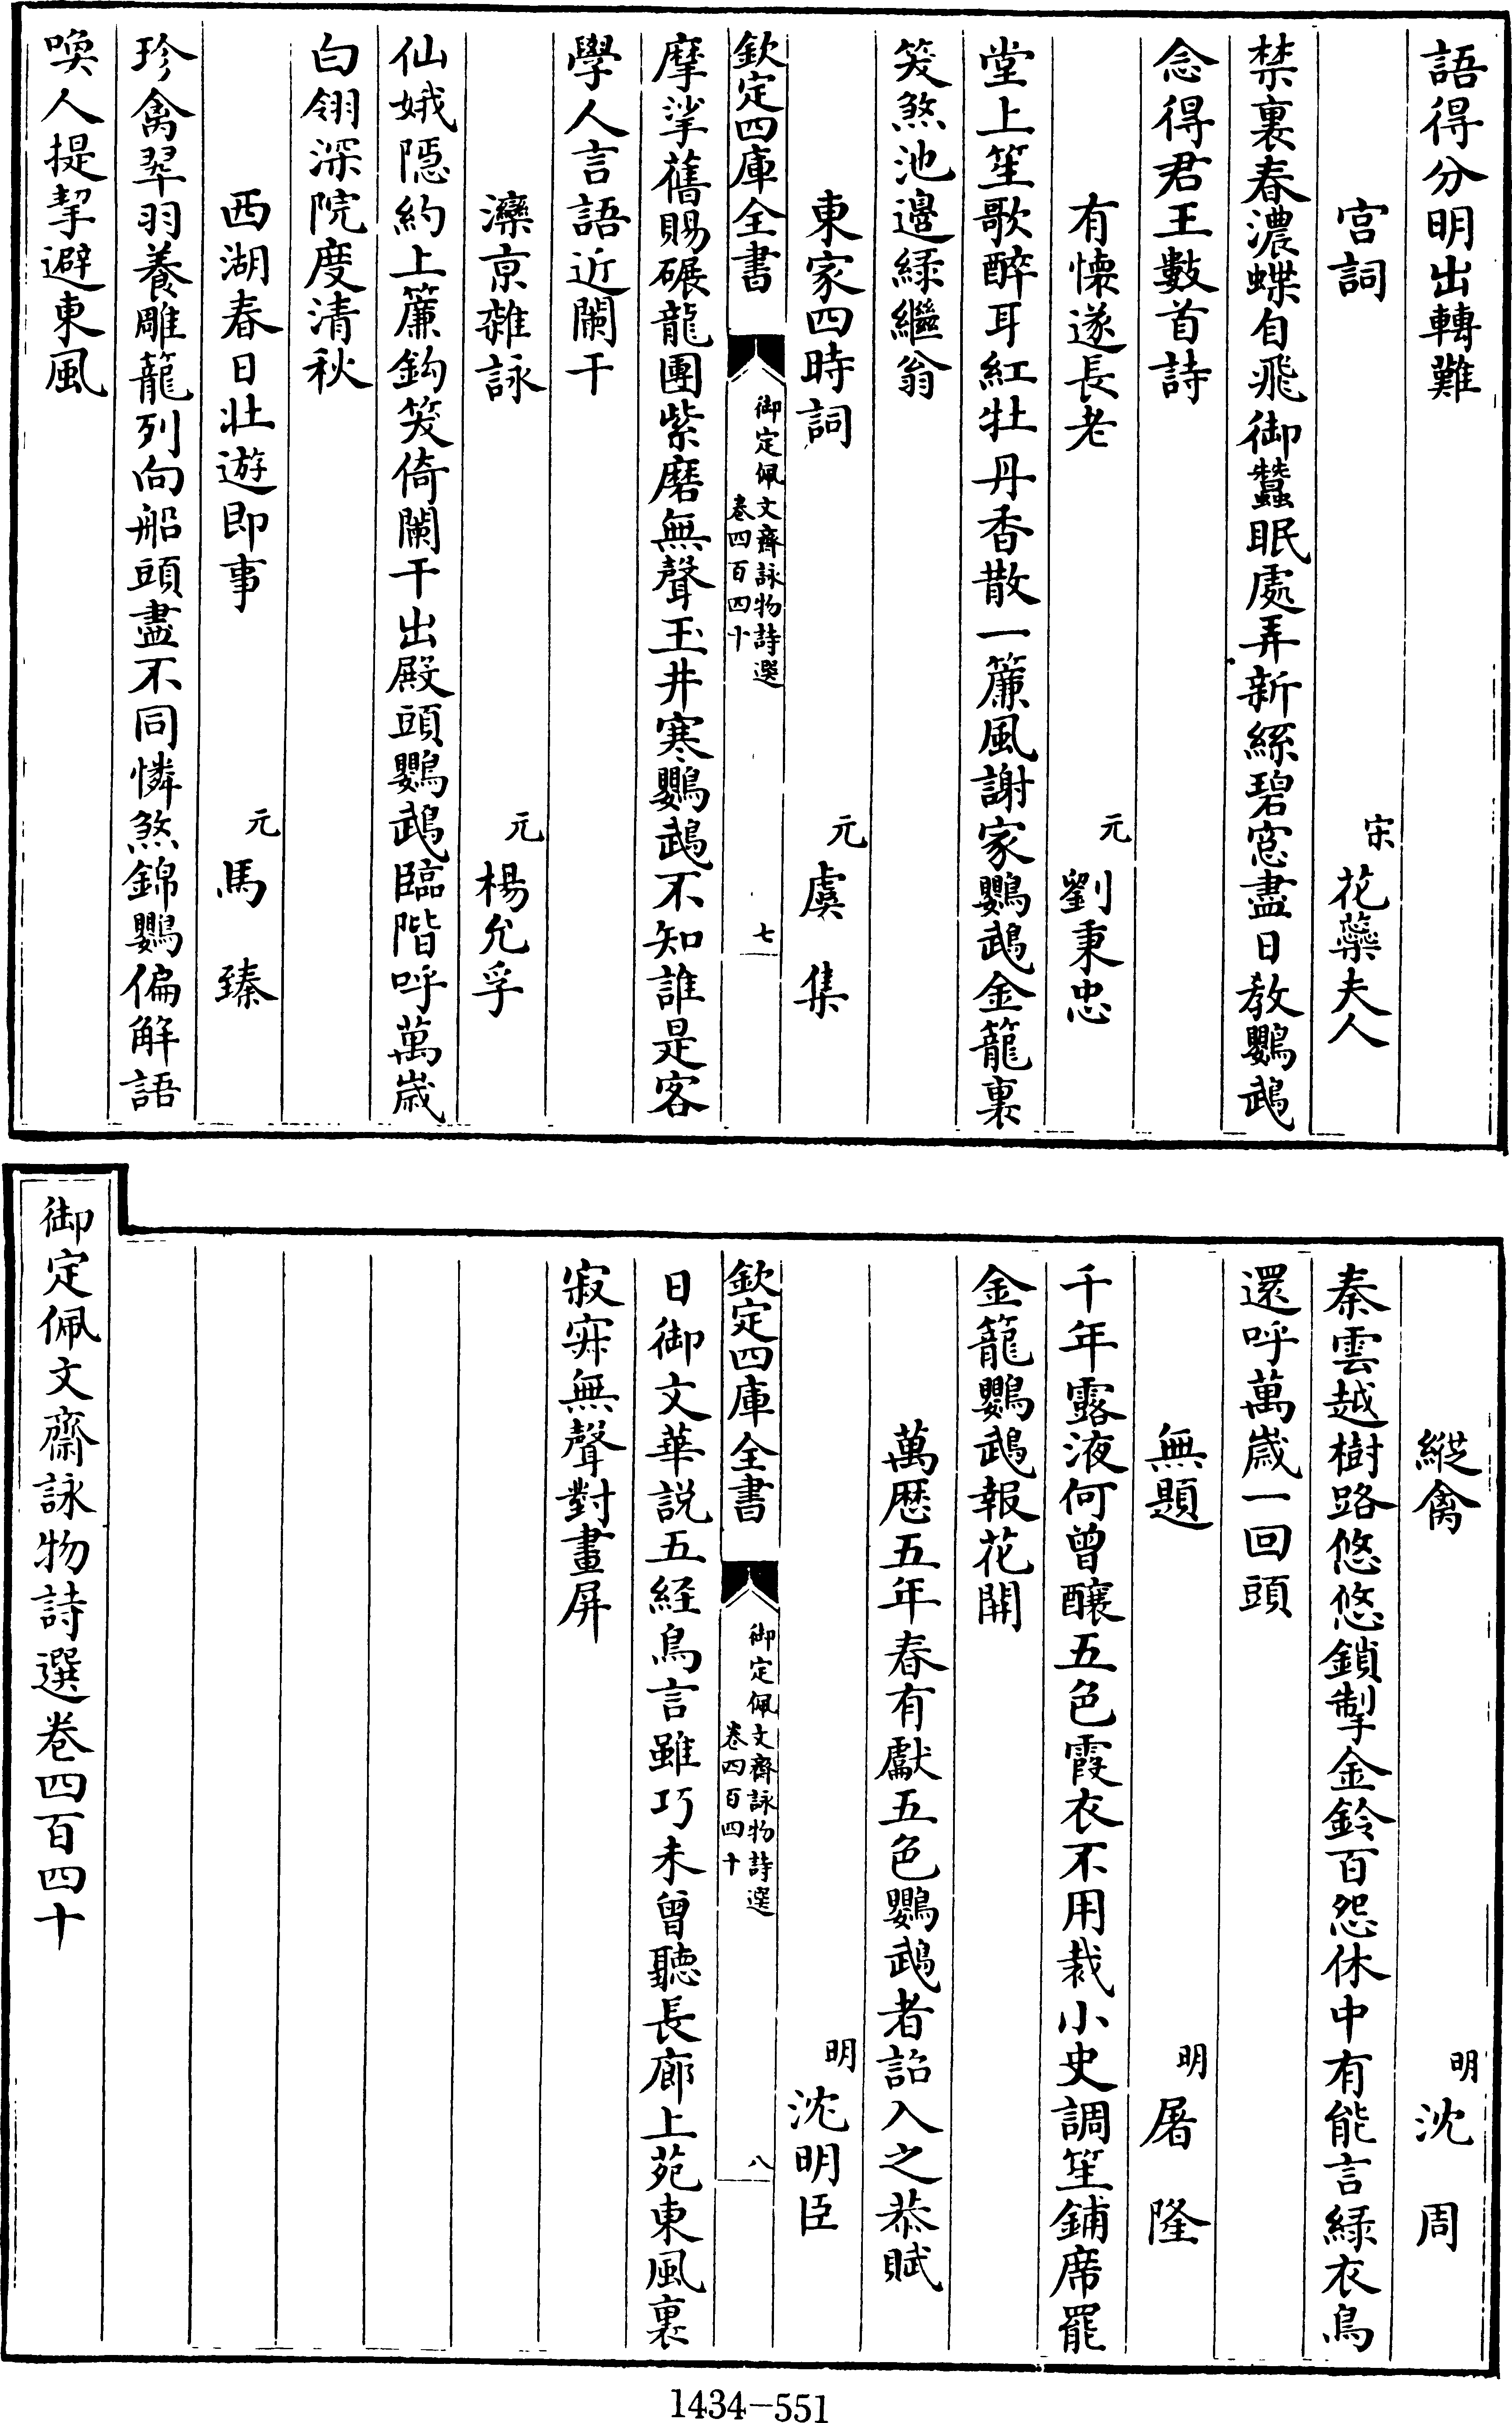 語得分明出轉難
宮詞 宋 花蘂夫人
禁裏春濃蝶自飛御蠶眠處弄新絲碧窓盡日教鸚鵡
念得君王數首詩
有懷遂長老 元 劉秉忠
堂上笙歌醉耳紅牡丹香散一簾風謝家鸚鵡金籠裏
笑煞池邊緑繼翁
東家四時詞 元 虞集
欽定四庫全書 御定佩文齋詠物詩選 卷四百四十 七
摩挲舊賜碾龍團紫磨無聲玉井寒鸚鵡不知誰是客
學人言語近闌干
灤京雜詠 元 楊允孚
仙娥隱約上簾鈎笑倚闌干出殿頭鸚鵡臨階呼萬歲
白翎深院度清秋
西湖春日壯遊即事 元 馬臻
珍禽翠羽養雕籠列向船頭盡不同憐煞錦鸚偏解語
喚人提挈避東風
縱禽 明 沈周
秦雲越樹路悠悠鎖掣金鈴百怨休中有能言緑衣鳥
還呼萬歲一回頭
無題 明 屠隆
千年露液何曾釀五色霞衣不用裁小史調笙鋪席罷
金籠鸚鵡報花開
萬歴五年春有獻五色鸚鵡者詔入之恭賦
明 沈明臣
欽定四庫全書 御定佩文齋詠物詩選 卷四百四十 八
日御文華説五經鳥言雖巧未曾聽長廊上苑東風裏
寂寞無聲對畫屏
御定佩文齋詠物詩選卷四百四十
1434-551